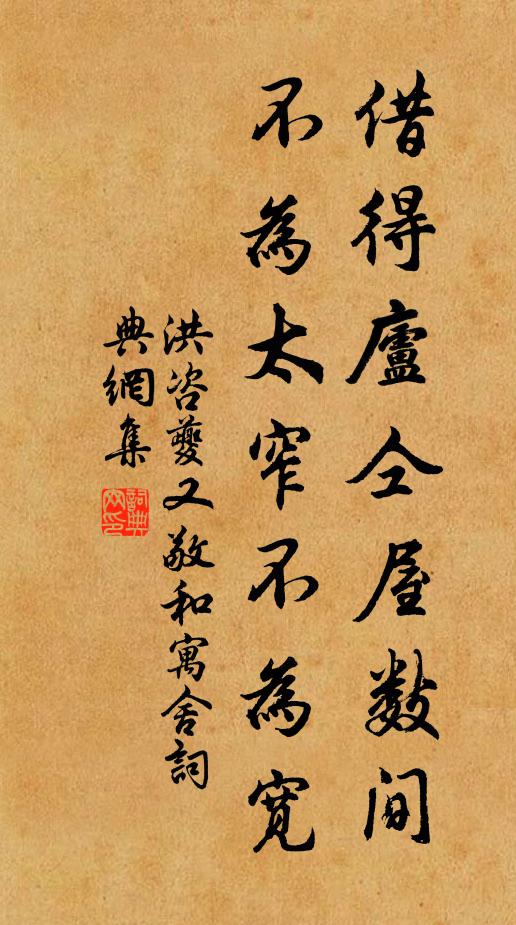 借得廬仝屋数间
不為太窄不為寬
洪咨夔又敬和寓舍詞
典網集
詞典網印